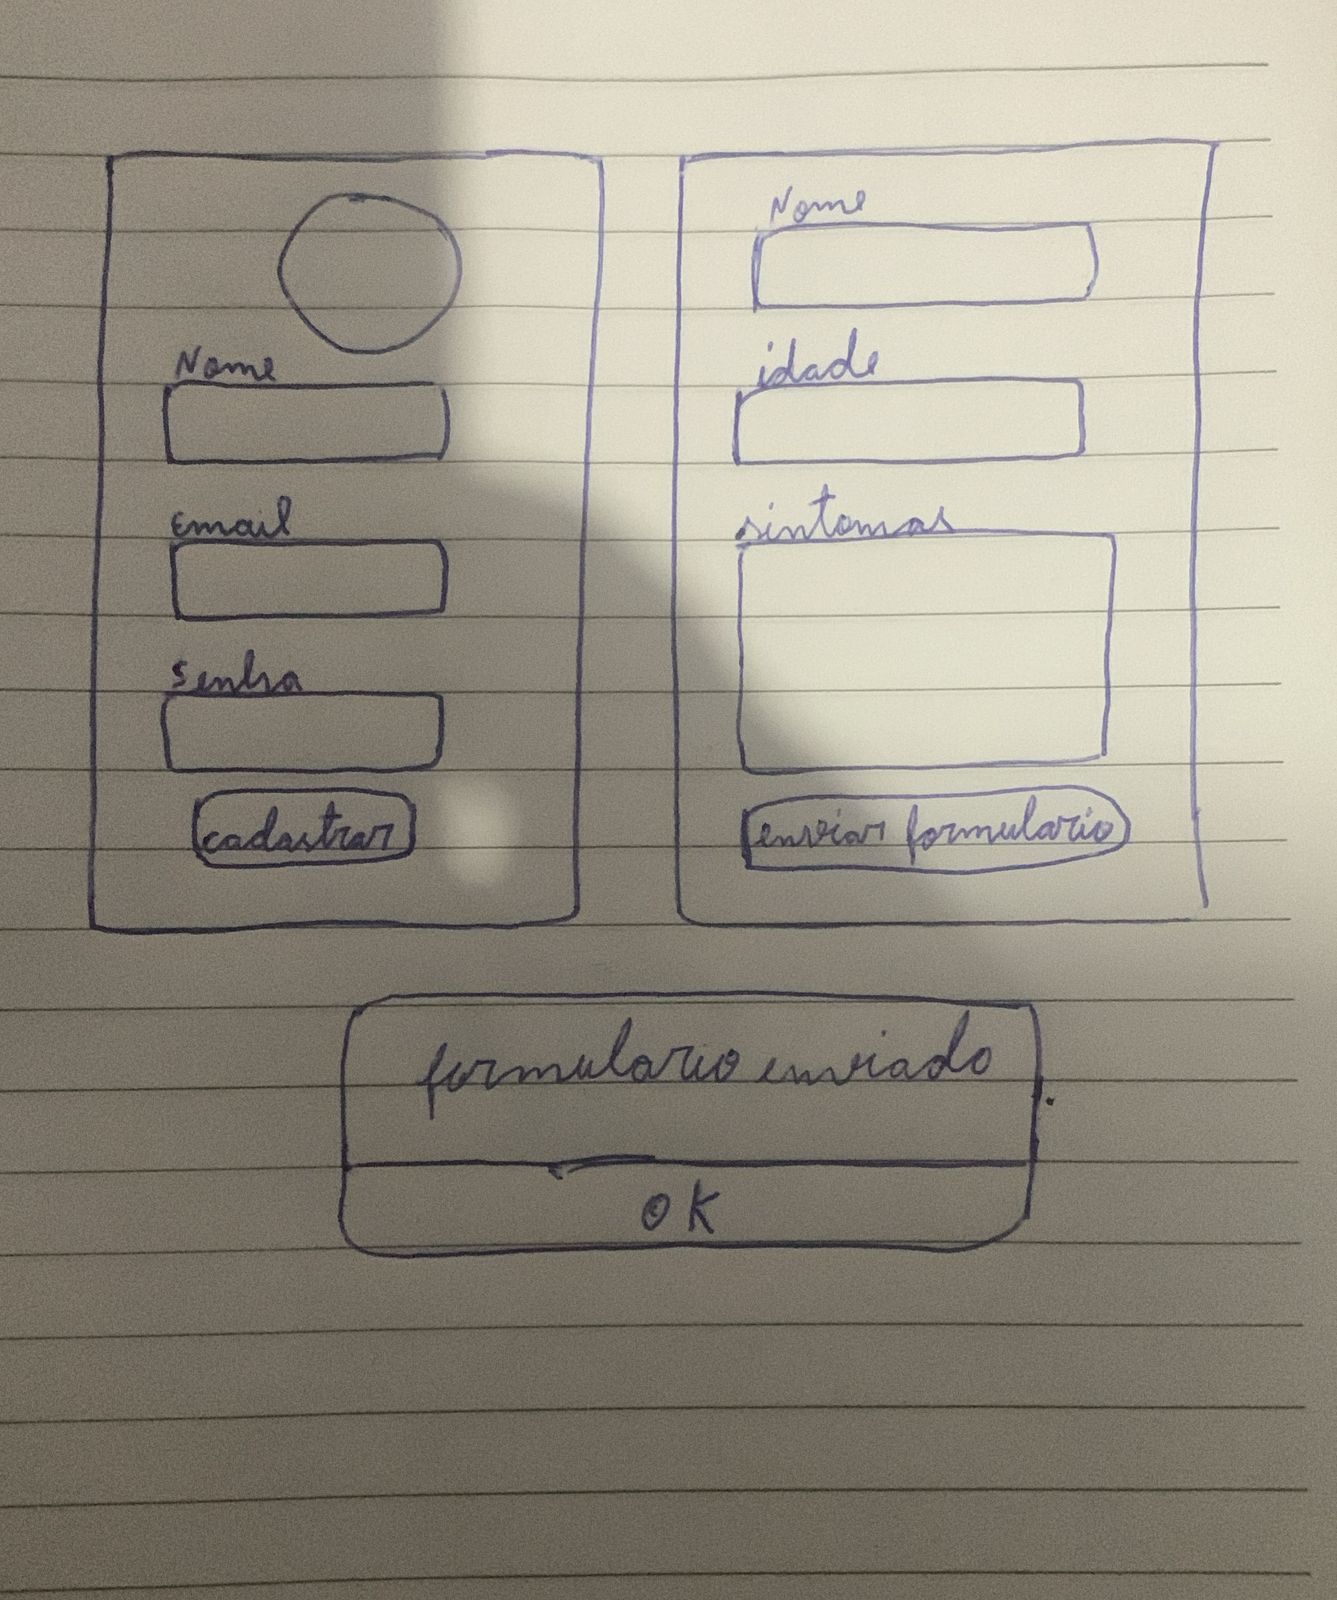 Nome
email
Senha
cadastrar
Nome
idade
sintomas
enviar formulario
formulario enviado
OK